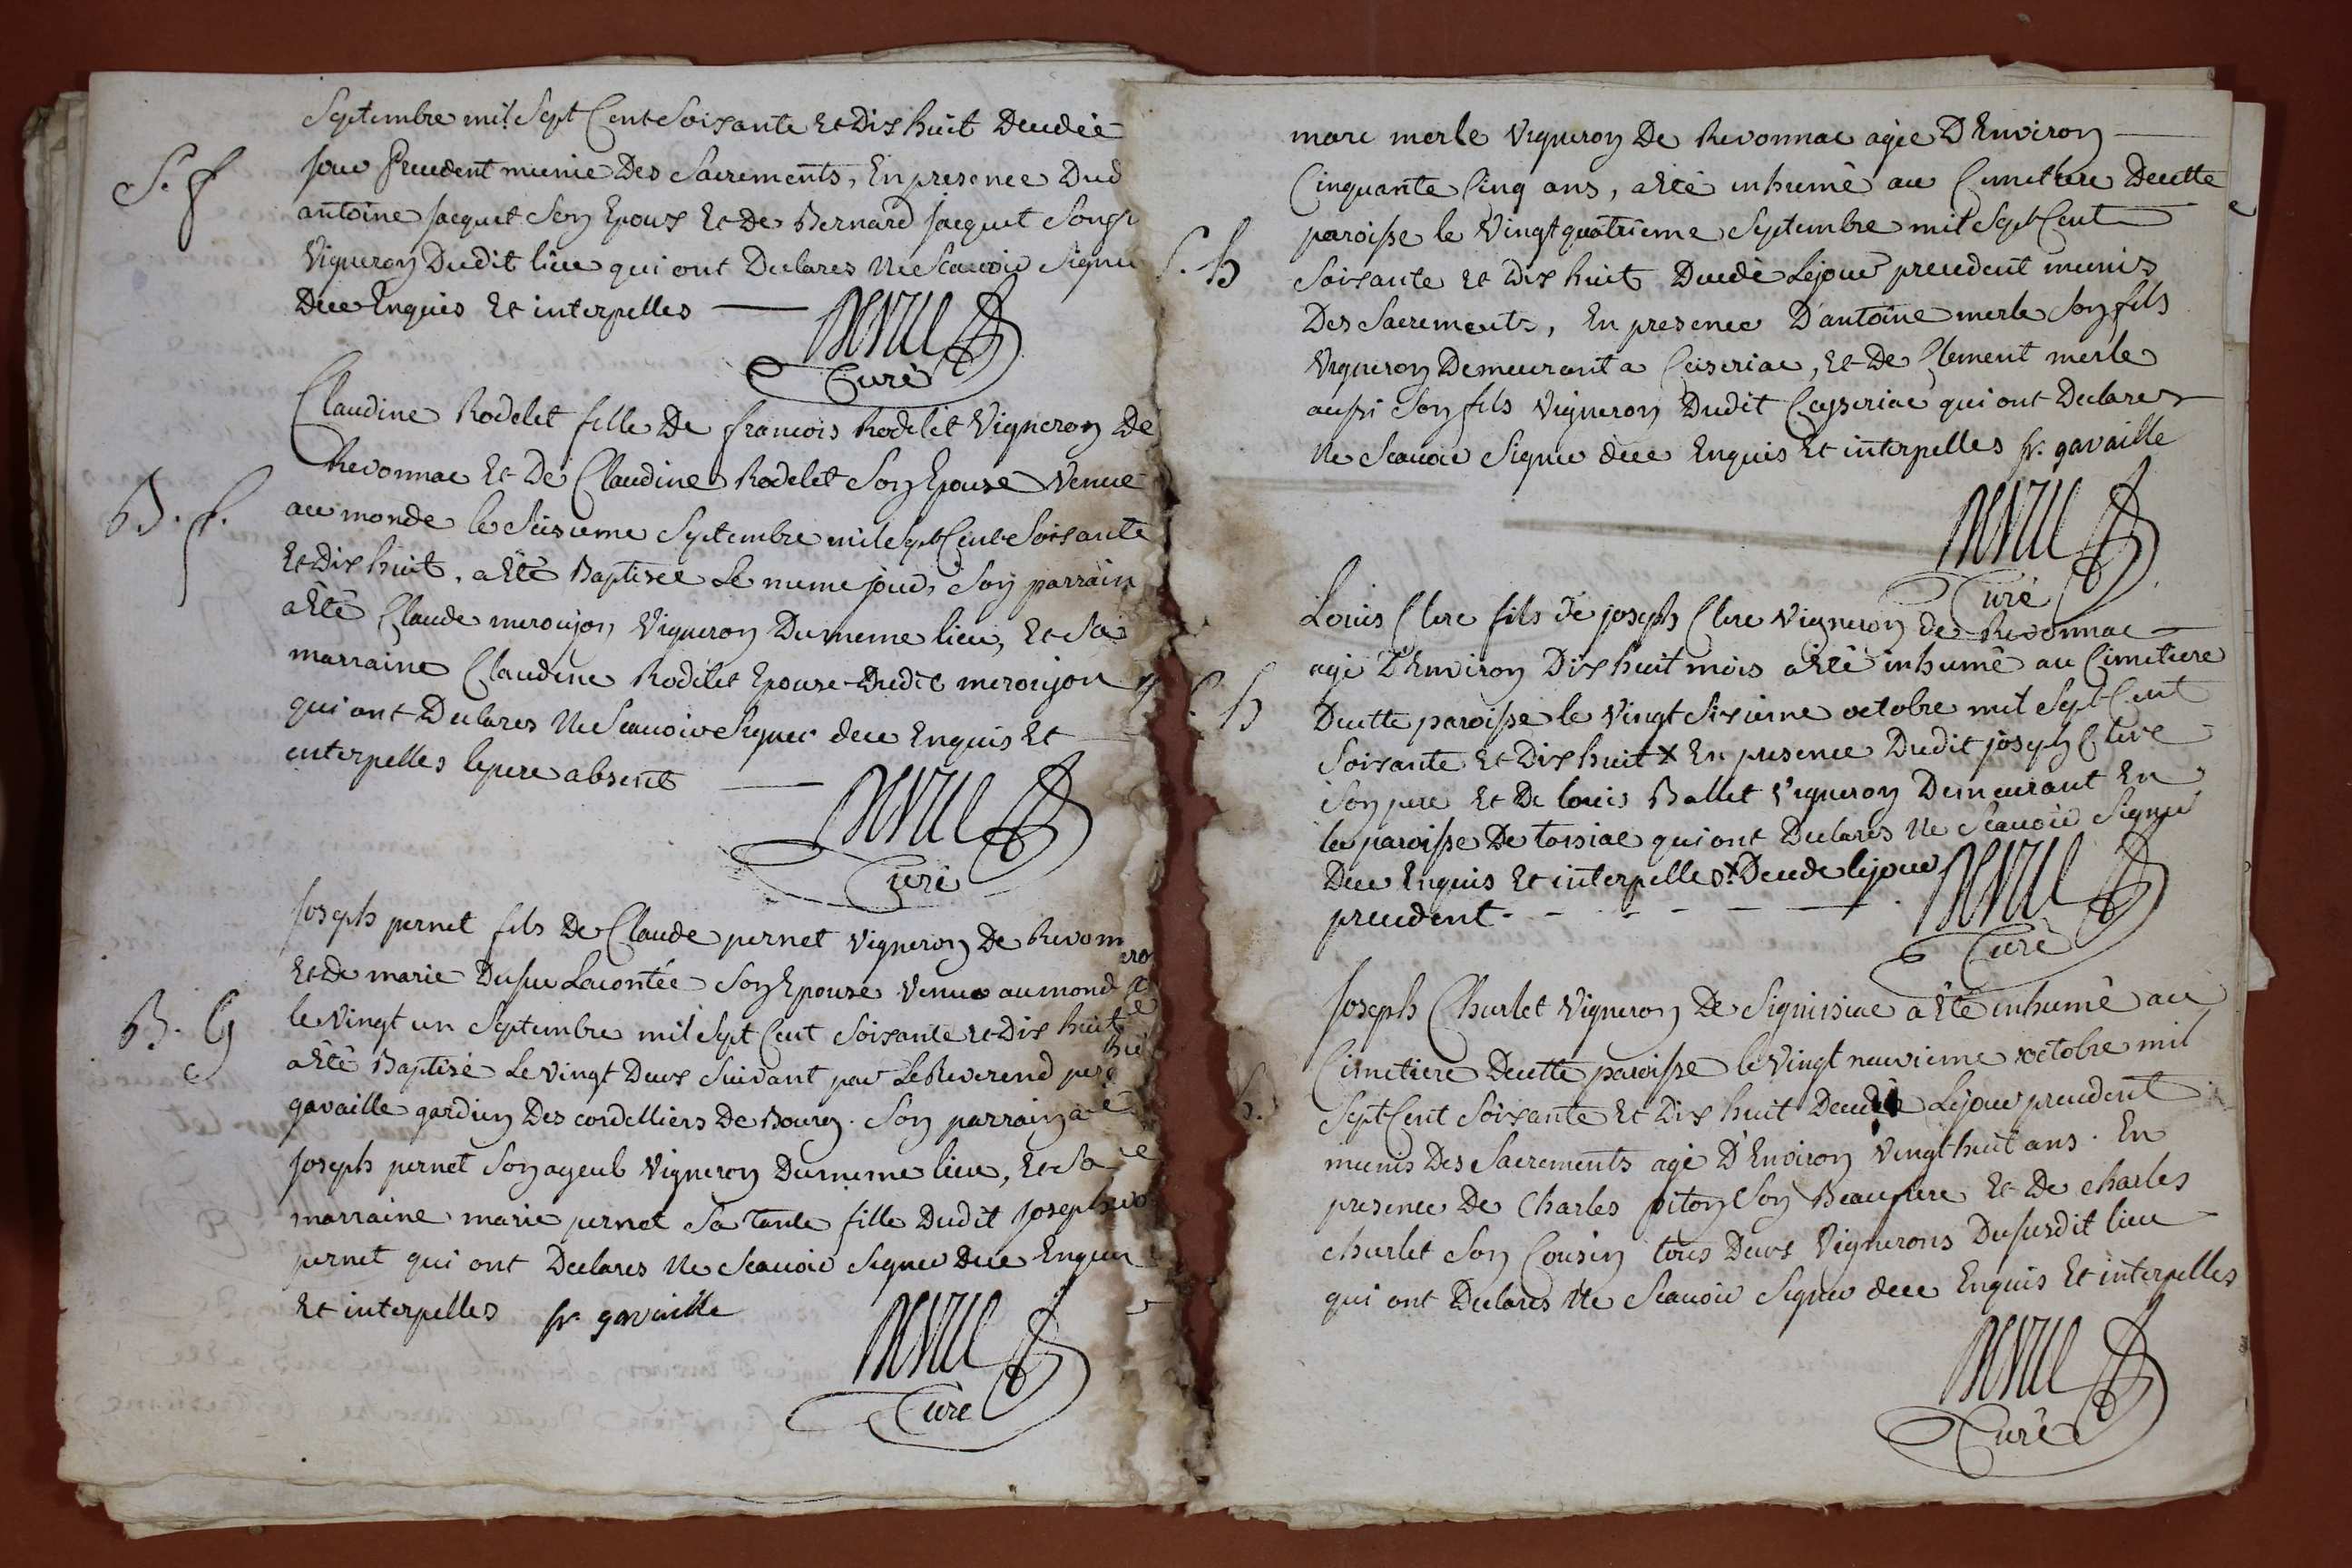 Septembre mil Sept Cent Soixante Et Dix huit Decedée
S. f
jour Precedent munie Des Sacrements, En presence Dud
antoine jacquet Son Epoux Et De Bernard jacquet Son
Vigneron Dudit lieu qui ont Declares Ne Scavoir Signer
Dece Enquis Et interpelles
Curé
Claudine Rodelet fille De francois Rodelet Vigneron De
Revonnac Et De Claudine Rodelet Son Epouse Venue
B. f.
au monde le Seisieme Septembre mil Sept Cent Soixante
Et Dix huit, a Eté Baptisée Le meme jour, Son parrain
a Eté Claude meroujon Vigneron Du meme lieu, Et Sa
marraine Claudine Rodelet Epouse Dudit meroujon
qui ont Declares Ne Scavoir Signer dece Enquis Et
interpelles le pere absent
Curé
Joseph pernet fils De Claude pernet Vigneron De Revon
Et De marie Son Epouse Venu au mond
B. G
le Vingt un Septembre mil Sept Cent Soixante Et Dix huit
a Eté Baptisé Le Vingt Deux Suivant par Le Reverend pere
gavaille gardien Des cordelliers De Bourg. Son parrain a
Joseph pernet Son ayeul Vigneron Du meme lieu, Et Sa
marraine marie pernet Sa Tante fille Dudit Joseph
pernet qui ont Declares Ne Scavoir Signer Dece Enquis
Et interpelles fr. gavaille
Curé
marc merle Vigneron De Revonnac agée D'Environ
Cinquante Cinq ans, a Eté inhumé au Cimethere Decette
paroisse le Vingt quatrieme Septembre mil Sept Cent
S. h
Soixante Et Dix huit Decedé Le jour precedent munis
Des Sacrements, En presence D'antoine merle Son fils
Vigneron Demeurant a Ceiseriac, Et De Clement merle
aussi Son fils Vigneron Dudit Ceyseriac qui ont Declares
Ne Scavoir Signer dece Enquis Et interpelles fr. gavaille
Curé
Louis Clerc fils de joseph Clerc Vigneron de Revonnac
agé D'Environ Dix huit mois a Eté inhumé au Cimetiere
S. h
Decette paroisse le Vingt Sixieme octobre mil Sept Cent
Soixante Et Dix huit X En presence Dudit joseph Clerc
Son pere Et De louis Ballet Vigneron Demeurant En
la paroisse De tossiac qui ont Declares Ne Scavoir Signer
Dece Enquis Et interpelles X Decede le jour
precedent.
Curé
Joseph Churlet Vigneron De Signisiac a Eté inhumé au
Cimetiere Decette paroisse le Vingt neuvieme octobre mil
h.
Sept Cent Soixante Et Dix huit Decedé Le jour precedent
munis Des Sacrements agé D'Environ Vingt huit ans. En
presence De Charles piton Son Beaufrere Et De charles
churlet Son Cousin tous Deux Vignerons Du Susdit lieu
qui ont Declares Ne Scavoir Signer dece Enquis Et interpelles
Curé